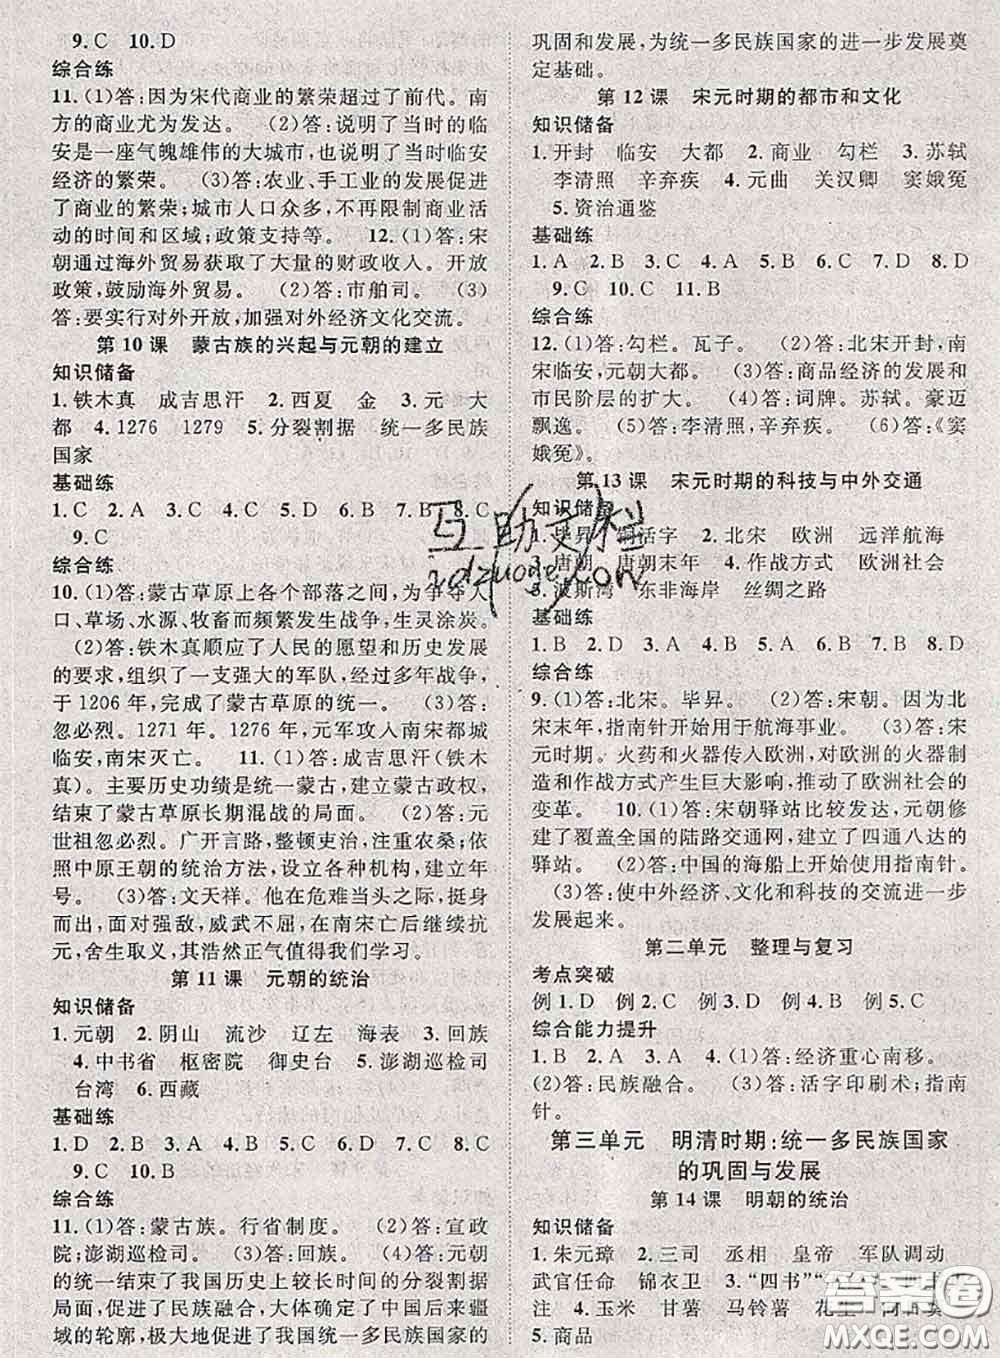 9.C 10.D
综合练
11.(1)答:因为宋代商业的繁荣超过了前代。南
方的商业尤为发达。 (2)答:说明了当时的临
安是一座气魄雄伟的大城市,也说明了当时临安
经济的繁荣。 (3)答:农业、手工业的发展促进
了商业的繁荣;城市人口众多,不再限制商业活
动的时间和区域;政策支持等。 12.(1)答:宋
朝通过海外贸易获取了大量的财政收入。开放
政策,鼓励海外贸易。 (2)答:市舶司。 (3)
答:要实行对外开放,加强对外经济文化交流。
第10课 蒙古族的兴起与元朝的建立
知识储备
1.铁木真 成吉思汗 2.西夏 金 3.元 大
都 4.1276 1279 5.分裂割据 统一多民族
国家
基础练
1.C 2.A 3.A 4.D 5.A 6.B 7.B 8.D
9.C
综合练
10.(1)答:蒙古草原上各个部落之间,为争夺人
口、草场、水源、牧畜而频繁发生战争,生灵涂炭。
(2)答:铁木真顺应了人民的愿望和历史发展
的要求,组织了一支强大的军队,经过多年战争,
于1206年,完成了蒙古草原的统一。 (3)答:
忽必烈。1271年。1276年,元军攻入南宋都城
临安,南宋灭亡。 11.(1)答:成吉思汗(铁木
真)。主要历史功绩是统一蒙古,建立蒙古政权,
结束了蒙古草原长期混战的局面。 (2)答:元
世祖忽必烈。广开言路,整顿吏治,注重农桑;依
照中原王朝的统治方法,设立各种机构,建立年
号。 (3)答:文天祥。他在危难当头之际,挺身
而出,面对强敌,威武不屈,在南宋亡后继续抗
元,舍生取义,其浩然正气值得我们学习。
第11课 元朝的统治
知识储备
1.元朝 2.阴山 流沙 辽左 海表 3.回族
4.中书省 枢密院 御史台 5.澎湖巡检司
台湾 6.西藏
基础练
1.D 2.D 3.A 4.A 5.C 6.A 7.B 8.C
9.C 10.B
综合练
11.(1)答:蒙古族。行省制度。 (2)答:宣政
院;澎湖巡检司。 (3)答:回族。 (4)答:元朝
的统一结束了我国历史上较长时间的分裂割据
局面,促进了民族融合,奠定了中国后来疆
域的轮廓,极大地促进了我国统一多民族国家的
巩固和发展,为统一多民族国家的进一步发展奠
定基础。
第12课 宋元时期的都市和文化
知识储备
1.开封 临安 大都 2.商业 勾栏 3.苏轼
李清照 辛弃疾 4.元曲 关汉卿 窦娥冤
5.资治通鉴
基础练
1.A 2.B 3.C 4.A 5.B 6.D 7.D 8.D
9.C 10.C 11.B
综合练
12.(1)答:勾栏。瓦子。 (2)答:北宋开封,南
宋临安,元朝大都。 (3)答:商品经济的发展和
市民阶层的扩大。 (4)答:词牌。苏轼。豪迈
飘逸。 (5)答:李清照,辛弃疾。 (6)答:《窦
娥冤》。
第13课 宋元时期的科技与中外交通
知识储备
1.毕昇 铜活字 2.北宋 欧洲 远洋航海
3.唐朝 唐朝末年 4.作战方式 欧洲社会
5.波斯湾 东非海岸 丝绸之路
基础练
1.B 2.D 3.B 4.A 5.C 6.B 7.B 8.D
综合练
9.(1)答:北宋。毕昇。 (2)答:宋朝。因为
北宋末年,指南针开始用于航海事业。 (3)答:宋
元时期。火药和火器传入欧洲,对欧洲的火器
制造和作战方式产生巨大影响,推动了欧洲社会的
变革。 10.(1)答:宋朝驿站比较发达,元朝修
建了覆盖全国的陆路交通网,建立了四通八达的
驿站。 (2)答:中国的海船上开始使用指南针。
(3)答:使中外经济、文化和科技的交流进一步
发展起来。
第二单元 整理与复习
考点突破
例1.D 例2.C 例3.D 例4.B 例5.C
综合能力提升
1.B 2.A 3.A 4.(1)答:经济重心南移。
(2)答:民族融合。 (3)答:活字印刷术;指南
针。
第三单元 明清时期:统一多民族国家
的巩固与发展
第14课 明朝的统治
知识储备
1.朱元璋 2.三司 丞相 皇帝 军队调动
武官任命 锦衣卫 3.“四书”“
注 4.玉米 甘薯 马铃薯
5.商品
互助文档
zdzuoge.com
答案圈
MXQE.COM